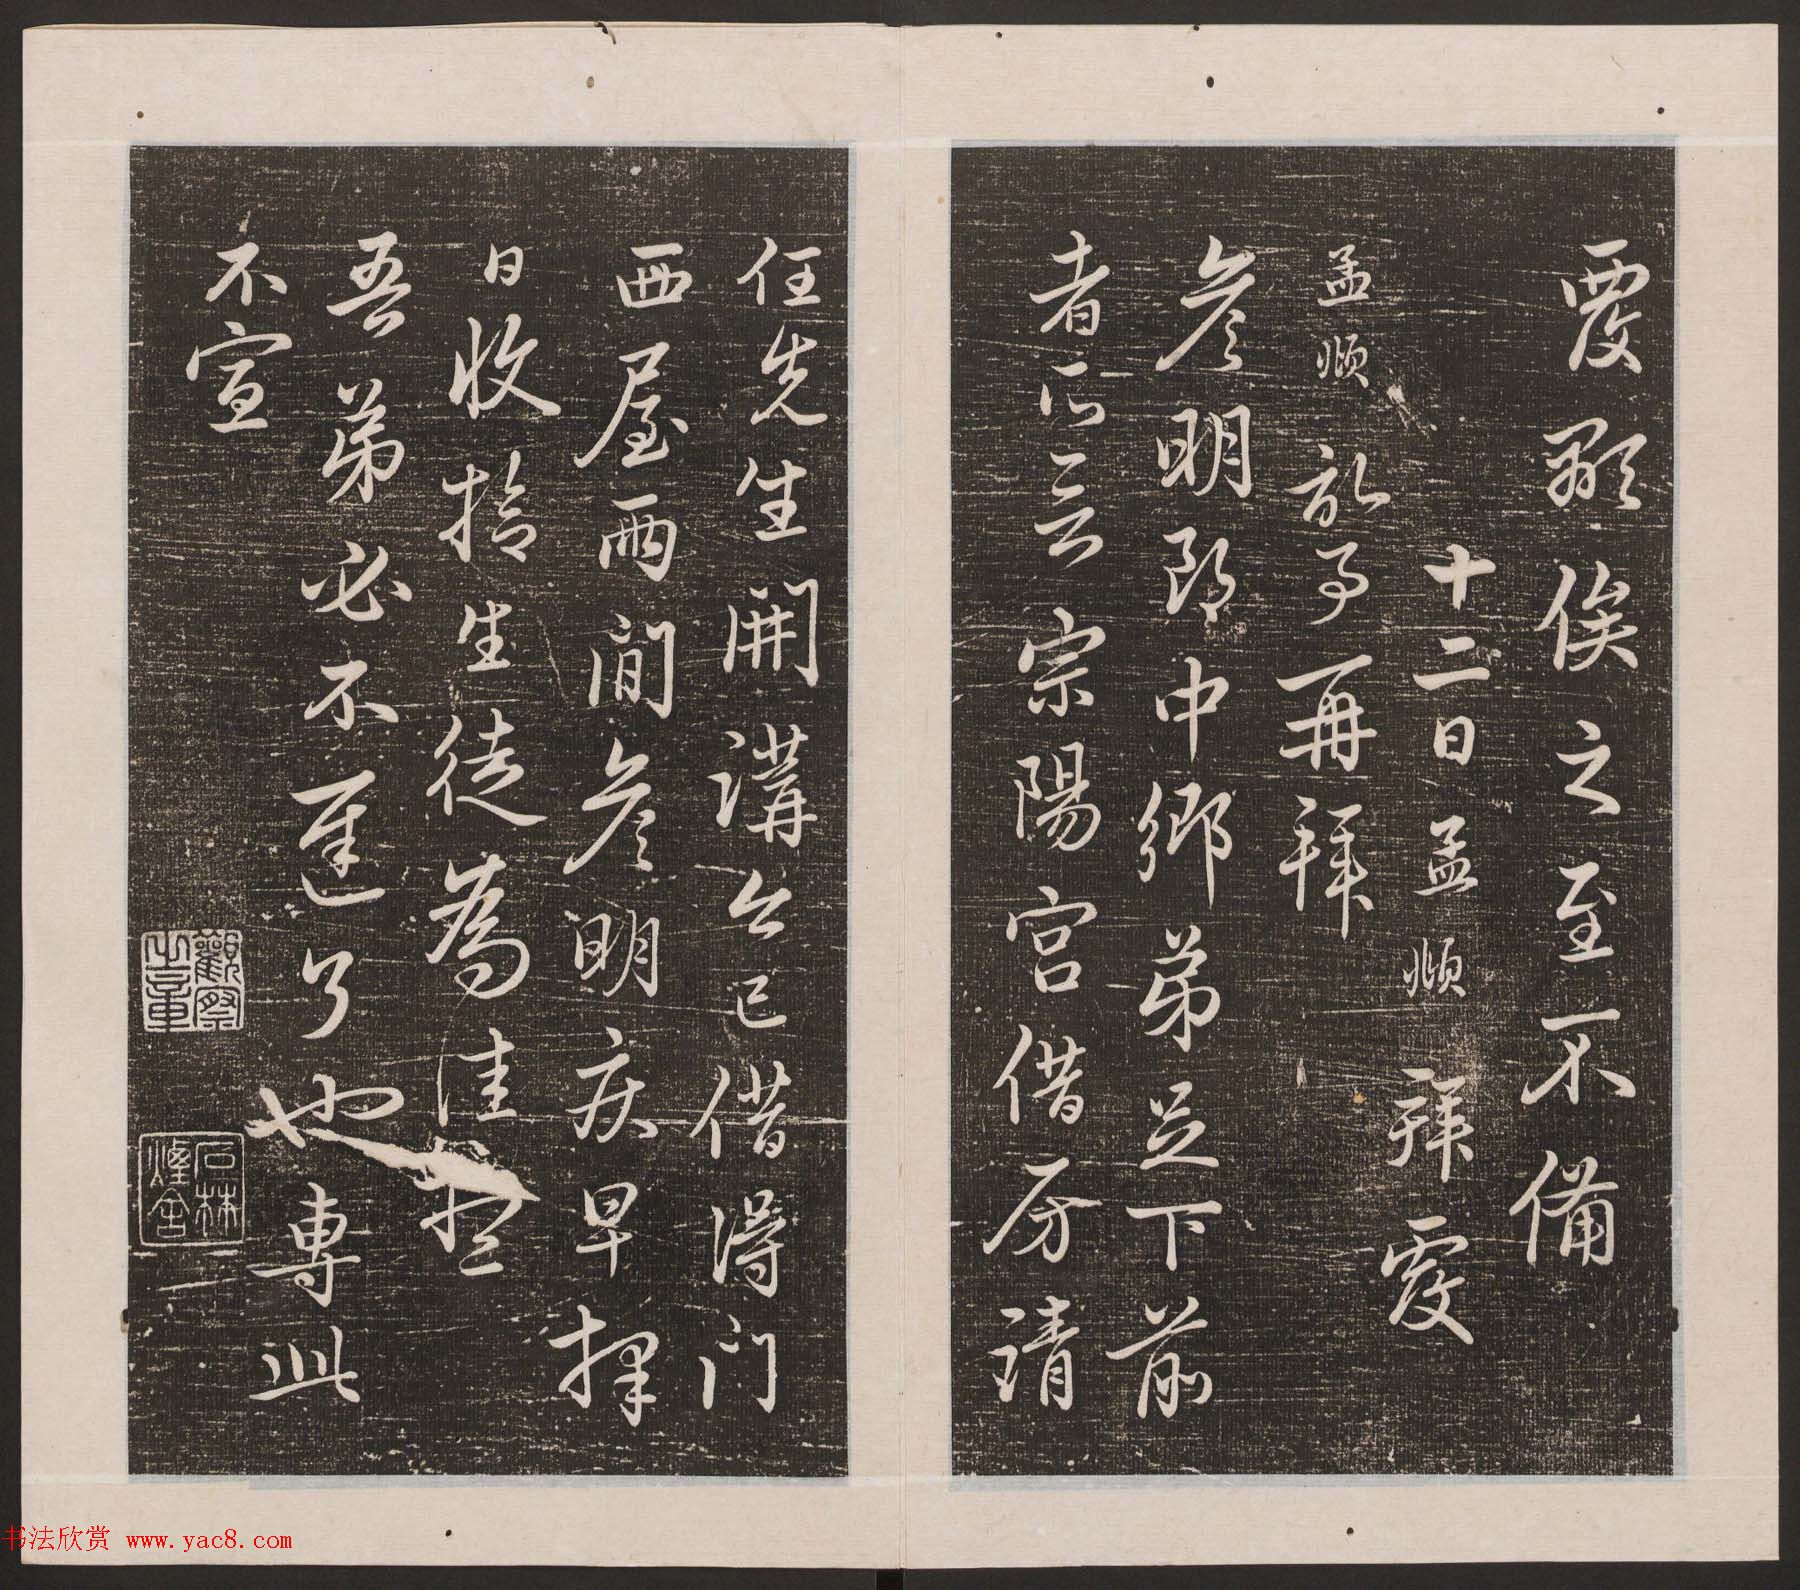 覆顒俟之至不備
十二日孟頫拜覆
孟頫記事再拜
彥明郎中鄉弟足下前
者所言宗陽宮借房請
任先生開講今已借得門
西屋兩間彥明疾早擇
日收拾生徒為佳想
吾弟必不遲了也專此
不宣
觀察之章
石林
书法欣赏 www.yac8.com